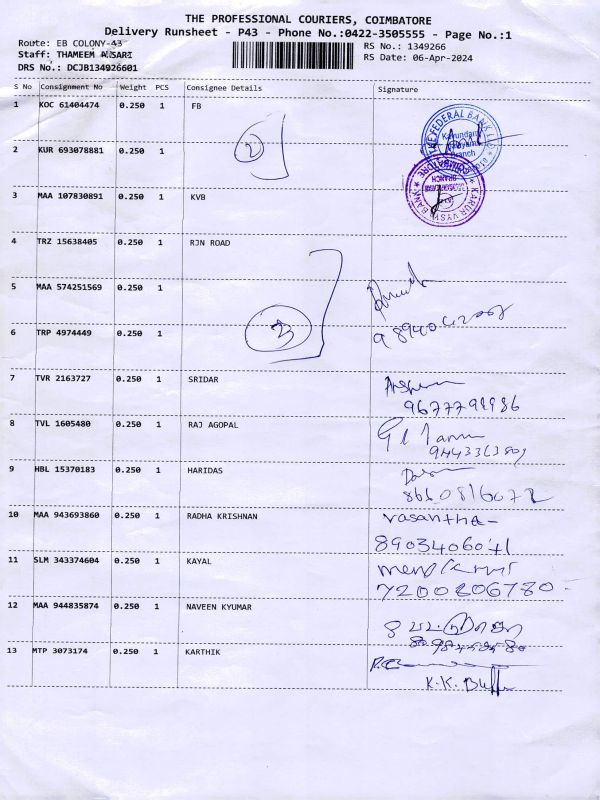 THE PROFESSIONAL COURIERS, COIMBATORE
Delivery Runsheet - P43 - Phone No.:0422-3505555 - Page No.:1
Route: EB COLONY-43
RS No.: 1349266
Staff: THAMEEM ANSARI
RS Date: 06-Apr-2024
DRS No.: DCJB134926601
S No Consignment No Weight PCS Consignee Details Signature
1 KOC 61404474 0.250 1 FB
THE FEDERAL BANK LTD
2 KUR 693078881 0.250 1
2
KARUR VYSYA BANK
3 MAA 107830891 0.250 1 KVB
4 TRZ 15638405 0.250 1 RJN ROAD
5 MAA 574251569 1 0.250
6 TRP 4974449 0.250 1
3
7 TVR 2163727 0.250 1 SRIDAR
8 TVL 1605480 0.250 1 RAJ AGOPAL
9 HBL 15370183 0.250 1 HARIDAS
8660816072
10 MAA 943693860 0.250 1 RADHA KRISHNAN
vasantha-
8903406041
11 SLM 343374604 0.250 1 KAYAL
7200206780-
12 MAA 944835874 0.250 1 NAVEEN KYUMAR
13 MTP 3073174 0.250 1 KARTHIK
K.K.